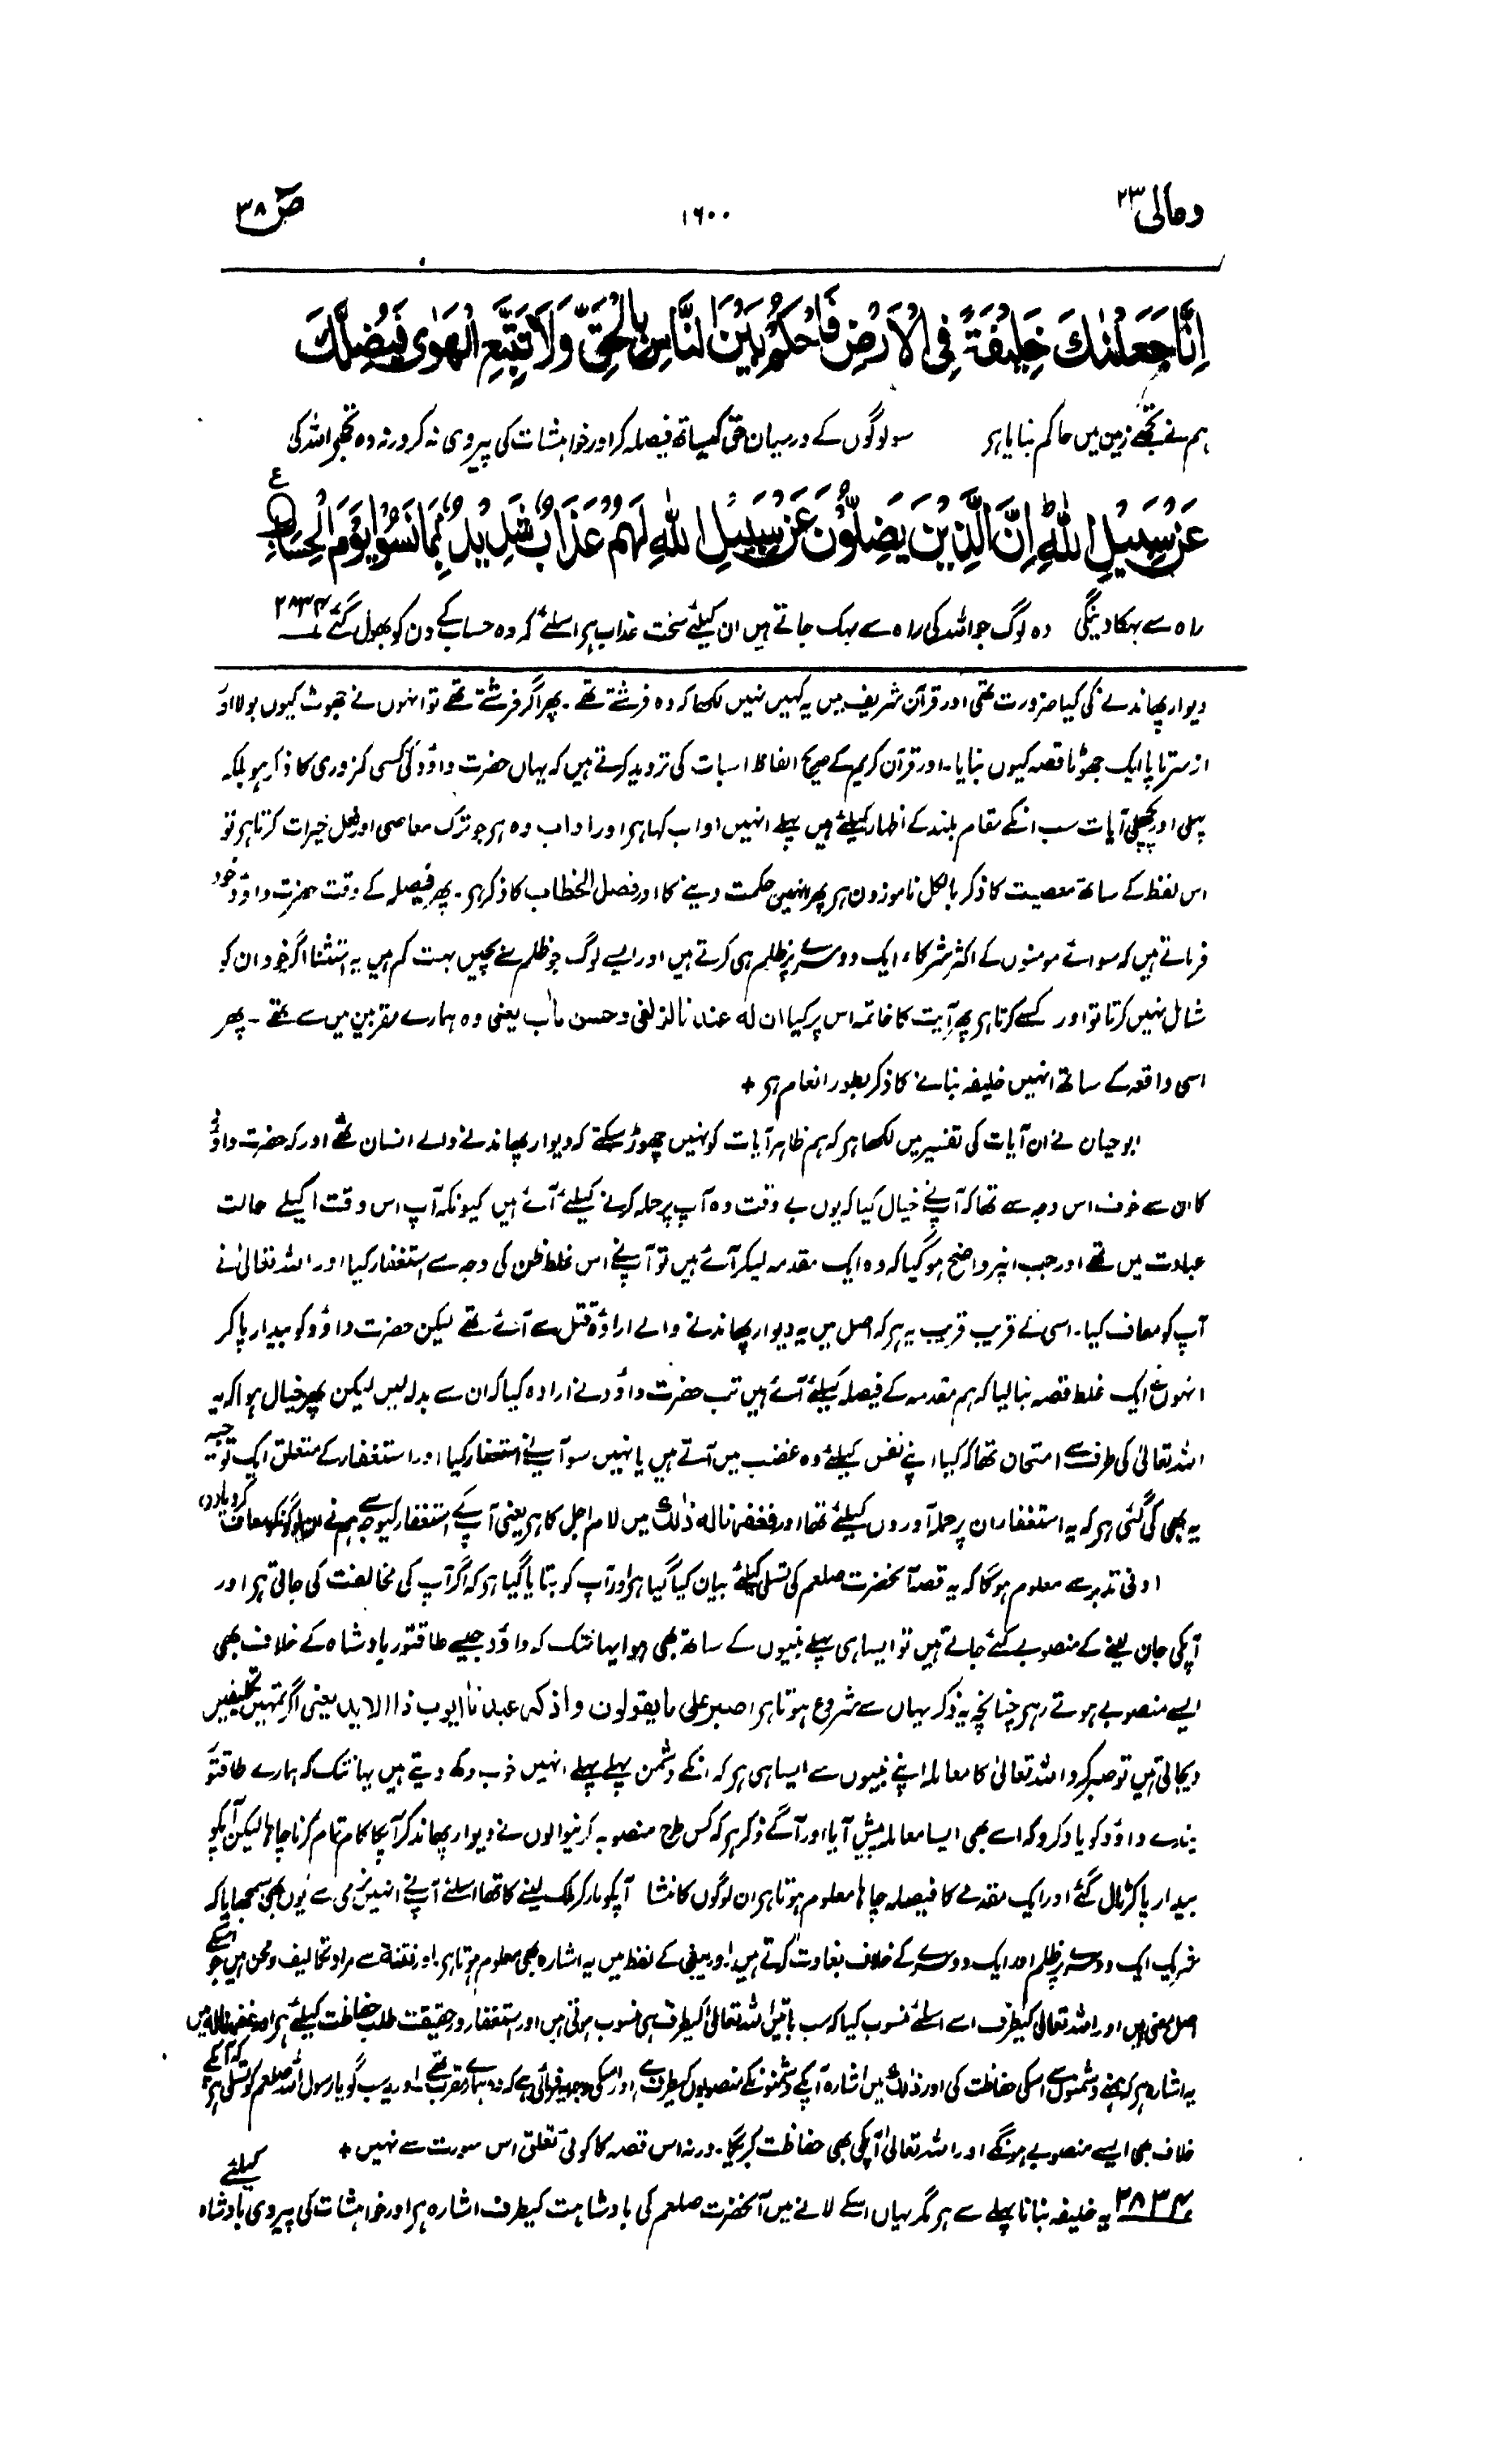 ومالی ۲۳
۱۶۰۰
صٓ ۳۸
اِنَّا جَعَلْنٰكَ خَلِيْفَةً فِى الْاَرْضِ فَاحْكُمْ بَيْنَ النَّاسِ بِالْحَقِّ وَلَا تَتَّبِعِ الْهَوٰى فَيُضِلَّكَ
ہم نے تجھے زمین میں حاکم بنایا ہر سو لوگوں کے درمیان حق کیساتھ فیصلہ کر اور خواہشات کی پیروی نہ کر ورنہ وہ تجھے اللہ کی
عَنْ سَبِيْلِ اللّٰهِ ؕ اِنَّ الَّذِيْنَ يَضِلُّوْنَ عَنْ سَبِيْلِ اللّٰهِ لَهُمْ عَذَابٌ شَدِيْدٌۢ بِمَا نَسُوْا يَوْمَ الْحِسَابِ ع
راہ سے بہکا دینگی وہ لوگ جو اللہ کی راہ سے بہک جاتے ہیں ان کیلئے سخت عذاب ہر اسلئے کہ وہ حساب کے دن کو بھول گئے ۲۸۳۴
دیوار پھاندنے کی کیا ضرورت تھی اور قرآن شریف میں یہ کہیں نہیں لکھا کہ وہ فرشتے تھے ۔ پھر اگر فرشتے تھے تو انہوں نے جھوٹ کیوں بولا اور
از سرتاپا ایک جھوٹا قصہ کیوں بنایا ۔ اور قرآن کریم کے صریح الفاظ اسبات کی تردید کرتے ہیں کہ یہاں حضرت داؤد کی کسی کمزوری کا ذکر ہو بلکہ
پہلی اور پچھلی آیات سب انکے مقام بلند کے اظہار کیلئے ہیں پہلے انہیں اواب کہا ہر اور اواب وہ ہر جو ترک معاصی اور فعل خیرات کرتا ہر تو
اس لفظ کے ساتھ معصیت کا ذکر بالکل ناموزون ہر پھر انہیں حکمت دینے کا اور فصل الخطاب کا ذکر ہر ۔ پھر فیصلہ کے وقت حضرت داؤد خود
فرماتے ہیں کہ سوائے مومنوں کے اکثر شرکاء ایک دوسرے پر ظلم ہی کرتے ہیں اور ایسے لوگ جو ظلم سے بچیں بہت کم ہیں یہ استثنا اگر خود ان کو
شامل نہیں کرتا تو اور کسے کرتا ہر پھر آیت کا خاتمہ اس پر کیا ان له عندنا لزلفى وحسن ماٰب یعنی وہ ہمارے مقربین میں سے تھے ۔ پھر
اسی واقعہ کے ساتھ انہیں خلیفہ بنانے کا ذکر بطور انعام ہر +
ابو حیان نے ان آیات کی تفسیر میں لکھا ہر کہ ہم ظاہر آیات کو نہیں چھوڑ سکتے کہ دیوار پھاندنے والے انسان تھے اور کہ حضرت داؤد
کا ان سے خوف اس وجہ سے تھا کہ آپنے خیال کیا کہ یوں بے وقت وہ آپ پر حملہ کرنے کیلئے آئے ہیں کیونکہ آپ اس وقت اکیلے حالت
عبادت میں تھے اور جب انپر واضح ہو گیا کہ وہ ایک مقدمہ لیکر آئے ہیں تو آپنے اس غلط ظن کی وجہ سے استغفار کیا اور اللہ تعالیٰ نے
آپ کو معاف کیا ۔ اسی کے قریب قریب یہ ہر کہ اصل میں یہ دیوار پھاندنے والے ارادۂ قتل سے آئے تھے لیکن حضرت داؤد کو بیدار پا کر
انہوں نے ایک غلط قصہ بنا لیا کہ ہم مقدمہ کے فیصلہ کیلئے آئے ہیں تب حضرت داؤد نے ارادہ کیا کہ ان سے بدلہ لیں لیکن پھر خیال ہوا کہ یہ
اللہ تعالیٰ کی طرف سے امتحان تھا کہ کیا اپنے نفس کیلئے وہ غضب میں آتے ہیں یا نہیں سو آپنے استغفار کیا اور استغفار کے متعلق ایک توجیہ
یہ بھی کی گئی ہر کہ یہ استغفار ان پر حملہ آوروں کیلئے تھا اور فغفرنا له ذٰلك میں لام اجل کا ہر یعنی آپ کے استغفار کیوجہ سے ہم نے ان لوگوں کو معاف کر دیا (ر)
ادنیٰ تدبر سے معلوم ہوگا کہ یہ قصہ آنحضرت صلعم کی تسلی کیلئے بیان کیا گیا ہر اور آپ کو بتایا گیا ہر کہ اگر آپ کی مخالفت کی جاتی ہر اور
آپکی جان لینے کے منصوبے کئے جاتے ہیں تو ایسا ہی پہلے نبیوں کے ساتھ بھی ہوا یہانتک کہ داؤد جیسے طاقتور بادشاہ کے خلاف بھی
ایسے منصوبے ہوتے رہے چنانچہ یہ ذکر یہاں سے شروع ہوتا ہر اصبر على ما يقولون واذكر عبدنا ايوب ذا الايد یعنی اگر تمہیں تکلیفیں
دیجاتی ہیں تو صبر کرو اللہ تعالیٰ کا معاملہ اپنے نبیوں سے ایسا ہی ہر کہ انکے دشمن پہلے پہلے انہیں خوب دکھ دیتے ہیں یہانتک کہ ہمارے طاقتور
بندے داؤد کو یاد کرو کہ اسے بھی ایسا معاملہ پیش آیا اور آگے ذکر ہر کہ کس طرح منصوبہ کرنیوالوں نے دیوار پھاند کر آپکا کام تمام کرنا چاہا لیکن آپکو
بیدار پا کر ٹال گئے اور ایک مقدمے کا فیصلہ چاہا معلوم ہوتا ہر ان لوگوں کا منشا آپکو مار کر ملک لینے کا تھا اسلئے آپنے انہیں نرمی سے یوں بھی سمجھایا کہ
شریک ایک دوسرے پر ظلم اور ایک دوسرے کے خلاف بغاوت کرتے ہیں اور یبغی کے لفظ میں یہ اشارہ بھی معلوم ہوتا ہر اور فتنة سے مراد تکالیف و محن ہیں جو اسکے
اصل معنی ہیں اور اللہ تعالیٰ کیطرف اسے اسلئے منسوب کیا کہ سب باتیں اللہ تعالیٰ کیطرف ہی منسوب ہوتی ہیں اور استغفار درحقیقت طلب حفاظت کیلئے ہر اور غفرنا له میں
یہ اشارہ ہر کہ ہمنے دشمنوں سے اسکی حفاظت کی اور ذٰلك میں اشارہ آپکے دشمنوں کے منصوبوں کیطرف ہے اور اسکی وجہ یہ فرمائی ہے کہ وہ ہمارے مقرب تھے ۔ اور یہ سب گویا رسول اللہ صلعم کو تسلی ہر کہ آپکے
خلاف بھی ایسے منصوبے ہونگے اور اللہ تعالیٰ آپکی بھی حفاظت کریگا ۔ ورنہ اس قصہ کا کوئی تعلق اس سورت سے نہیں +
۲۸۳۴ یہ خلیفہ بنانا پہلے سے ہر مگر یہاں اسکے لانے میں آنحضرت صلعم کی بادشاہت کیطرف اشارہ ہر اور خواہشات کی پیروی بادشاہ کیلئے